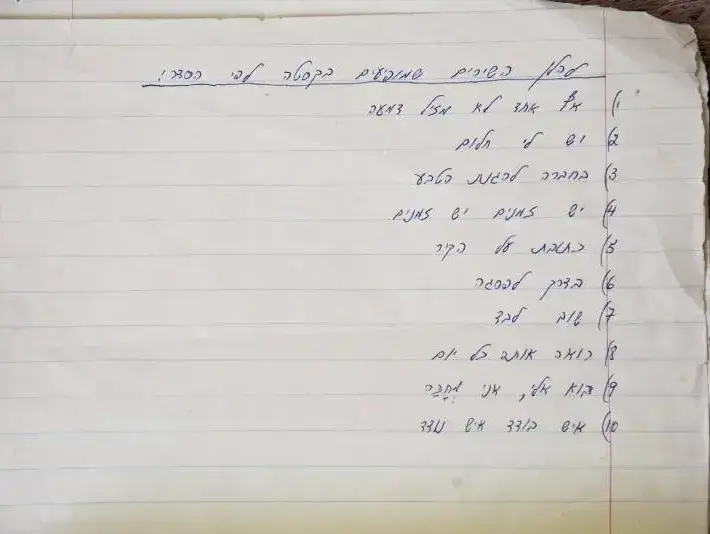 להלן השירים שמופיעים בקסטה לפי הסדר!
1) אף אחד לא מזיל דמעה
2) יש לי חלום
3) בחברה להגנת הטבע
4) יש זמנים יש זמנים
5) כתובת על הקיר
6) בדרך לפסגה
7) שוב לבד
8) רואה אותה כל יום
9) בוא אלי, אני מְחַכָּה
10) איש בודד איש נודד